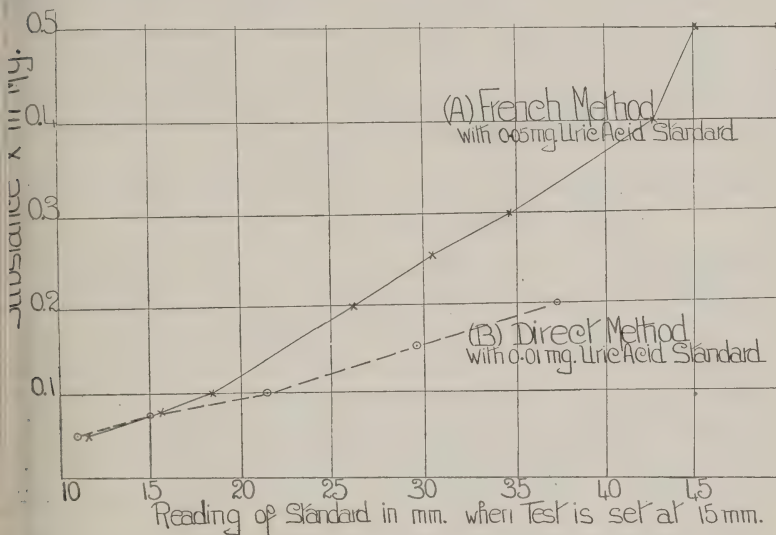 0.5
0.4
0.3
0.2
0.1
Substance x in mg.
(A) French Method
with 0.05mg. Uric Acid Standard
(B) Direct Method
with 0.01 mg. Uric Acid Standard
10 15 20 25 30 35 40 45
Reading of Standard in mm. when Test is set at 15 mm.